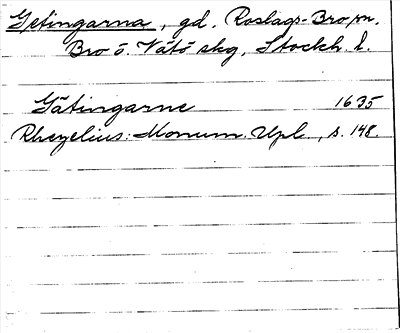 Getingarna, gd. Roslags-Bro sn.
Bro o. Vätö skg, Stockh. l.
Gätingarne 1635
Rhezelius: Monum. Upl., s. 148.